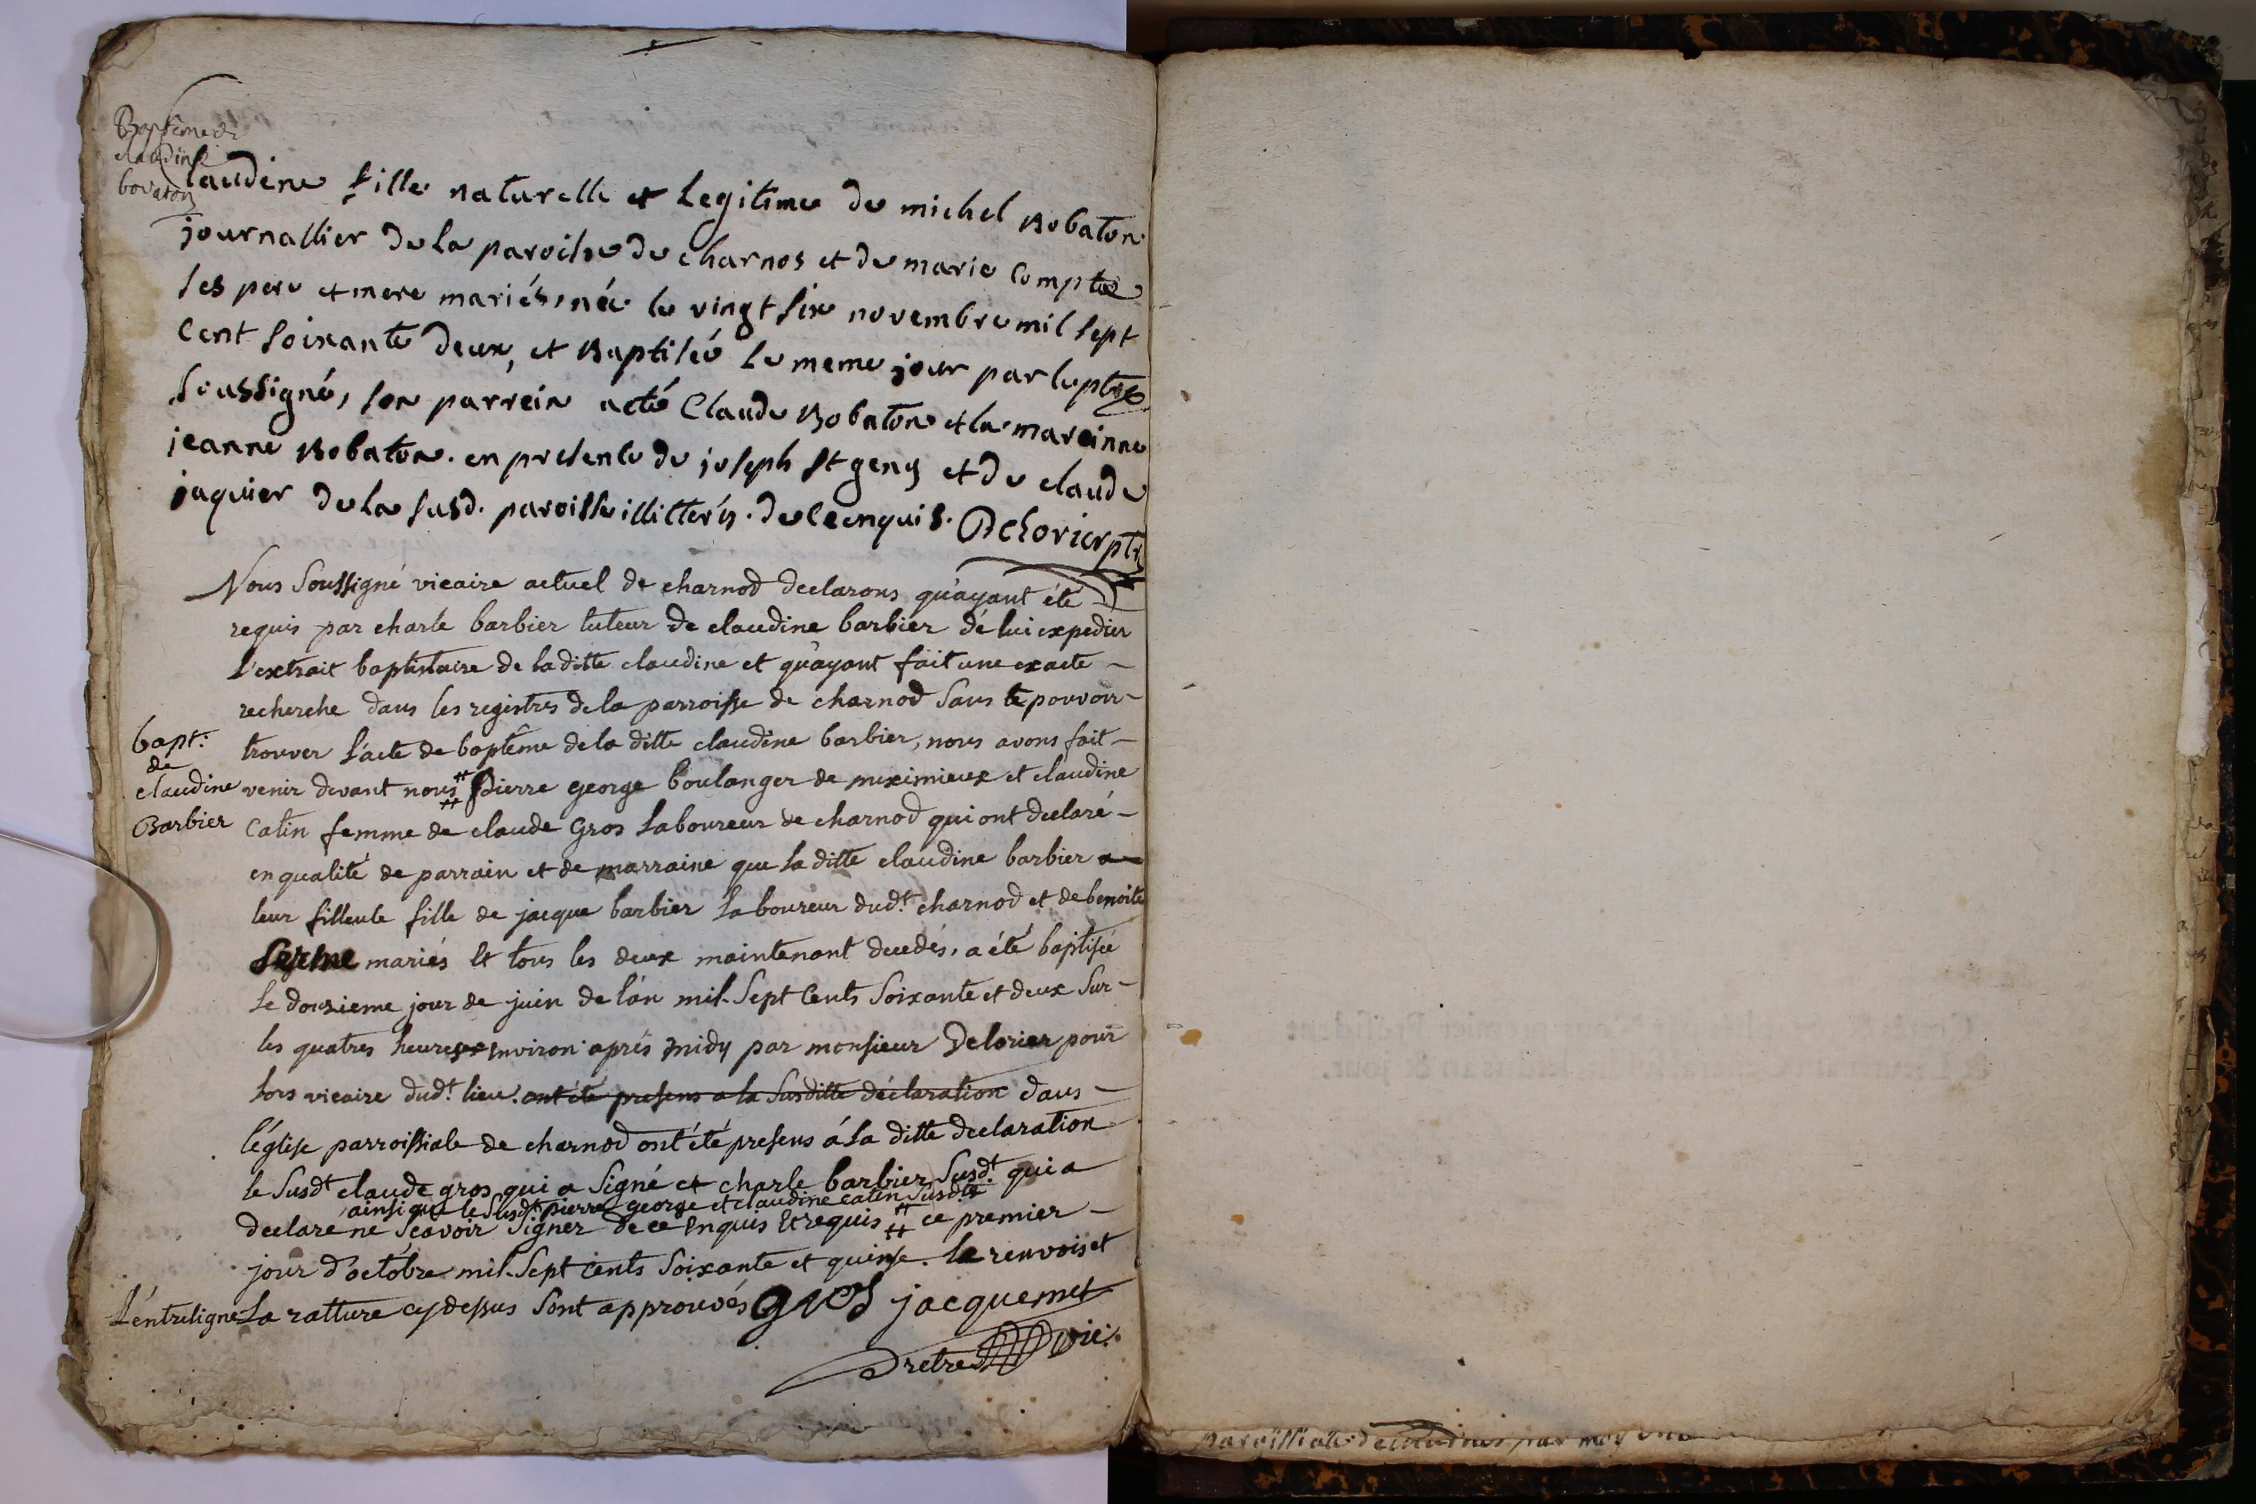 Baptême de
claudine
bobaton
Claudine fille naturelle et legitime de michel Bobaton
journallier de la paroisse de charnos et de marie Compte
ses pere et mere mariés, née le vingt six novembre mil sept
cent soixante deux, et Baptisée le meme jour par le ptre
soussigné, son parrein a eté Claude Bobaton et la mareinne
jeanne Bobaton. en presence de joseph st geny et de claude
jaquier de la susd. paroisse illitterés. de ce enquis. Delorier ptre
Nous soussigné vicaire actuel de charnod declarons qu'ayant été
requis par charle barbier tuteur de claudine barbier dé lui expedier
l'extrait baptistaire de laditte claudine et qu'ayant fait une exacte
recherche dans les registres de la parroisse de charnod sans le pouvoir
bapt:
de
claudine
Barbier
trouver l'acte de baptême de la ditte claudine barbier, nous avons fait
venir devant nous ⧺ pierre george boulanger de meximieux et claudine
catin femme de claude Gros laboureur de charnod qui ont declaré
en qualité de parrain et de marraine que la ditte claudine barbier
leur filleule fille de jacque barbier laboureur dud.t charnod et de benoite
mariés et tous les deux maintenant decedés, a été baptisée
le douzieme jour de juin de l'an mil Sept Cents Soixante et deux Sur
les quatres heures environ aprés midy par monsieur Delorier pour
lors vicaire dud.t lieu. ont été presens a la susditte déclaration dans
l'église parroissiale de charnod ont été presens á la ditte declaration
le susd.t claude gros qui a signé et charle barbier susd.t qui a
ainsi que le susd.t pierre george et claudine catin susdts
declare ne sçavoir signer de ce enquis et requis ⧺ ce premier
jour d'octobre mil Sept cents Soixante et quinse. le renvois et
L'entreligne La ratture cy dessus sont approuvés Gros jacquemet
pretre vic:
paroissiale